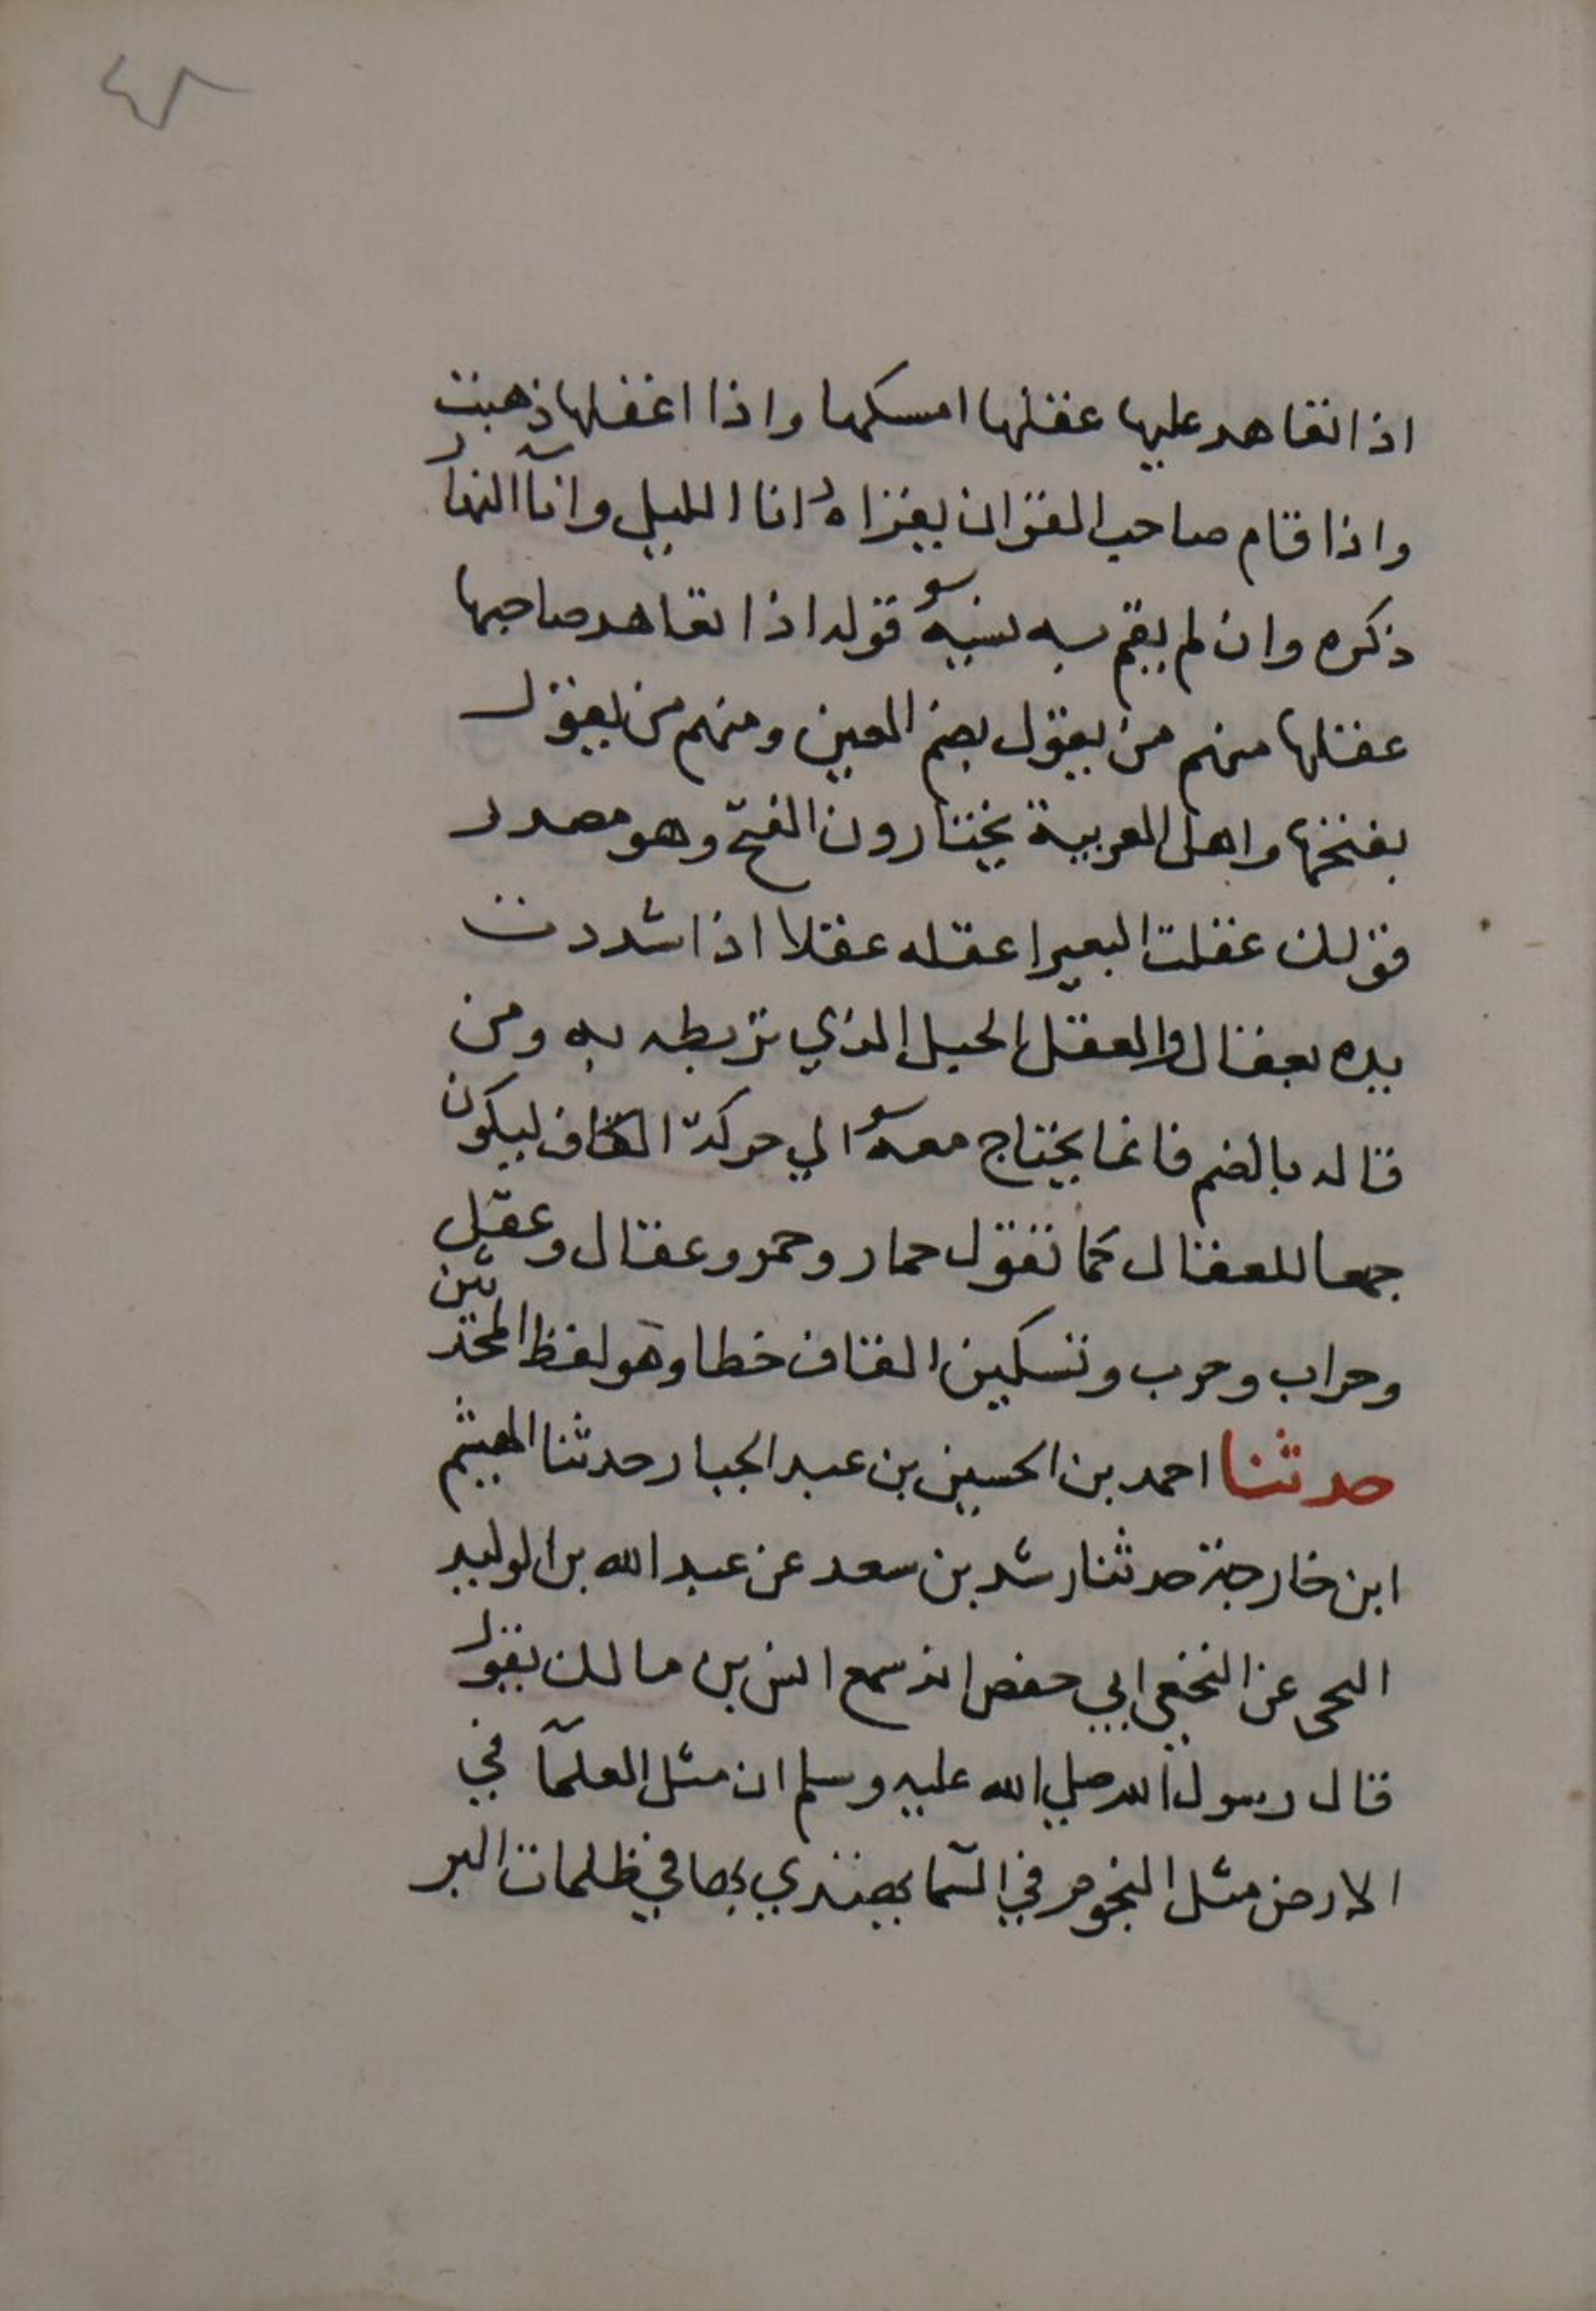 ٤٨
اذا تعاهد عليها عقلها امسكها واذا اغفلها ذهبت
واذا قام صاحب القران يقراه انا الليل وانآ النهار
ذكره وان لم يقم به نسيه قوله اذا تعاهد صاحبها
عقلها منهم من يقول بضم العين ومنهم من يقول
بفتحها واهل العربية يختارون الفتح وهو مصدر
قولك عقلت البعير اعقله عقلا اذا شددت
يده بعقال والعقل الحبل الذي تربطه به ومن
قاله بالضم فانما يحتاج معه الي حركة القاف ليكون
جمعا للعقال كما تقول حمار وحمر وعقال وعقل
وحراب وحرب وتسكين القاف خطا وهو لفظ المحدثين
حدثنا احمد بن الحسين بن عبد الجبار حدثنا الهيثم
ابن خارجة حدثنا رشد بن سعد عن عبد الله بن الوليد
عن النخعي ابي حفص انه سمع انس بن مالك يقول
قال رسول الله صلي الله عليه وسلم ان مثل العلمآ في
الارض مثل النجوم في السمآ يهتدي بها في ظلمات البر